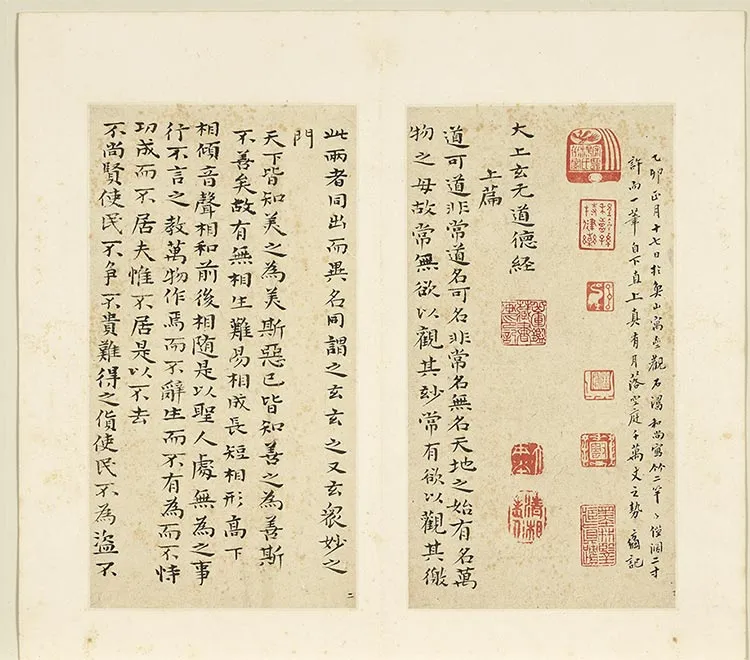 乙卯正月十七日於山寓觀石濤和尚寫竹二竿、僅濶二寸
許而一筆自下直上真有月落空庭千萬丈之勢 記
大上玄元道德経
上篇
道可道非常道名可名非常名無名天地之始有名萬
物之母故常無欲以觀其妙常有欲以觀其徼
此兩者同出而異名同謂之玄玄之又玄衆妙之
門
天下皆知美之為美斯惡已皆知善之為善斯
不善矣故有無相生難易相成長短相形高下
相傾音聲相和前後相隨是以聖人處無為之事
行不言之教萬物作焉而不辭生而不有為而不恃
功成而不居夫惟不居是以不去
不尚賢使民不爭不貴難得之貨使民不為盜不
二